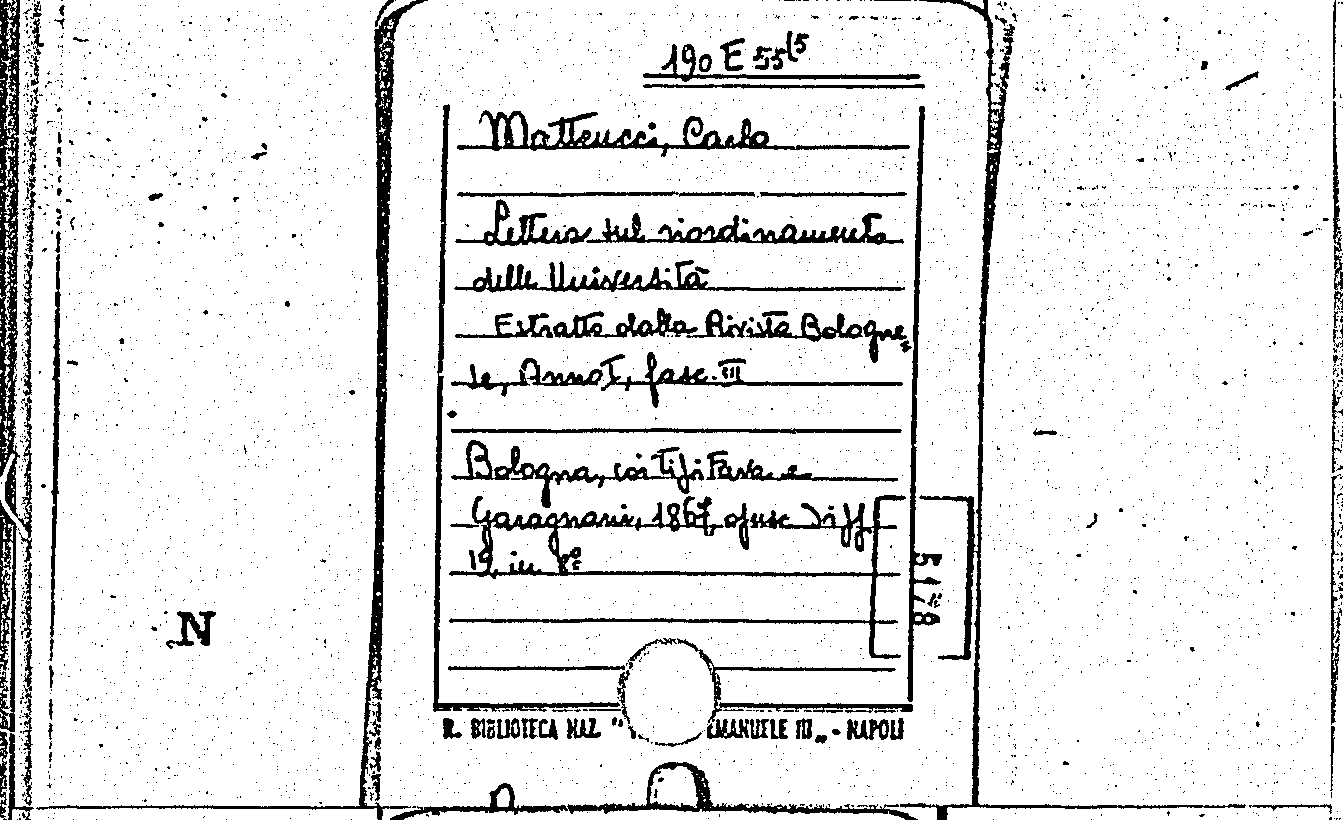 190 E 55(5
Matteucci, Carlo
Lettera sul riordinamento
delle Università
Estratto dalla Rivista Bologne=
se, Anno I, fasc. III
Bologna, coi tipi Fava e
Garagnani, 1867, opusc. di ff.
19 in 8°
5178
N
R. BIBLIOTECA NAZ. " EMANUELE III„ - NAPOLI